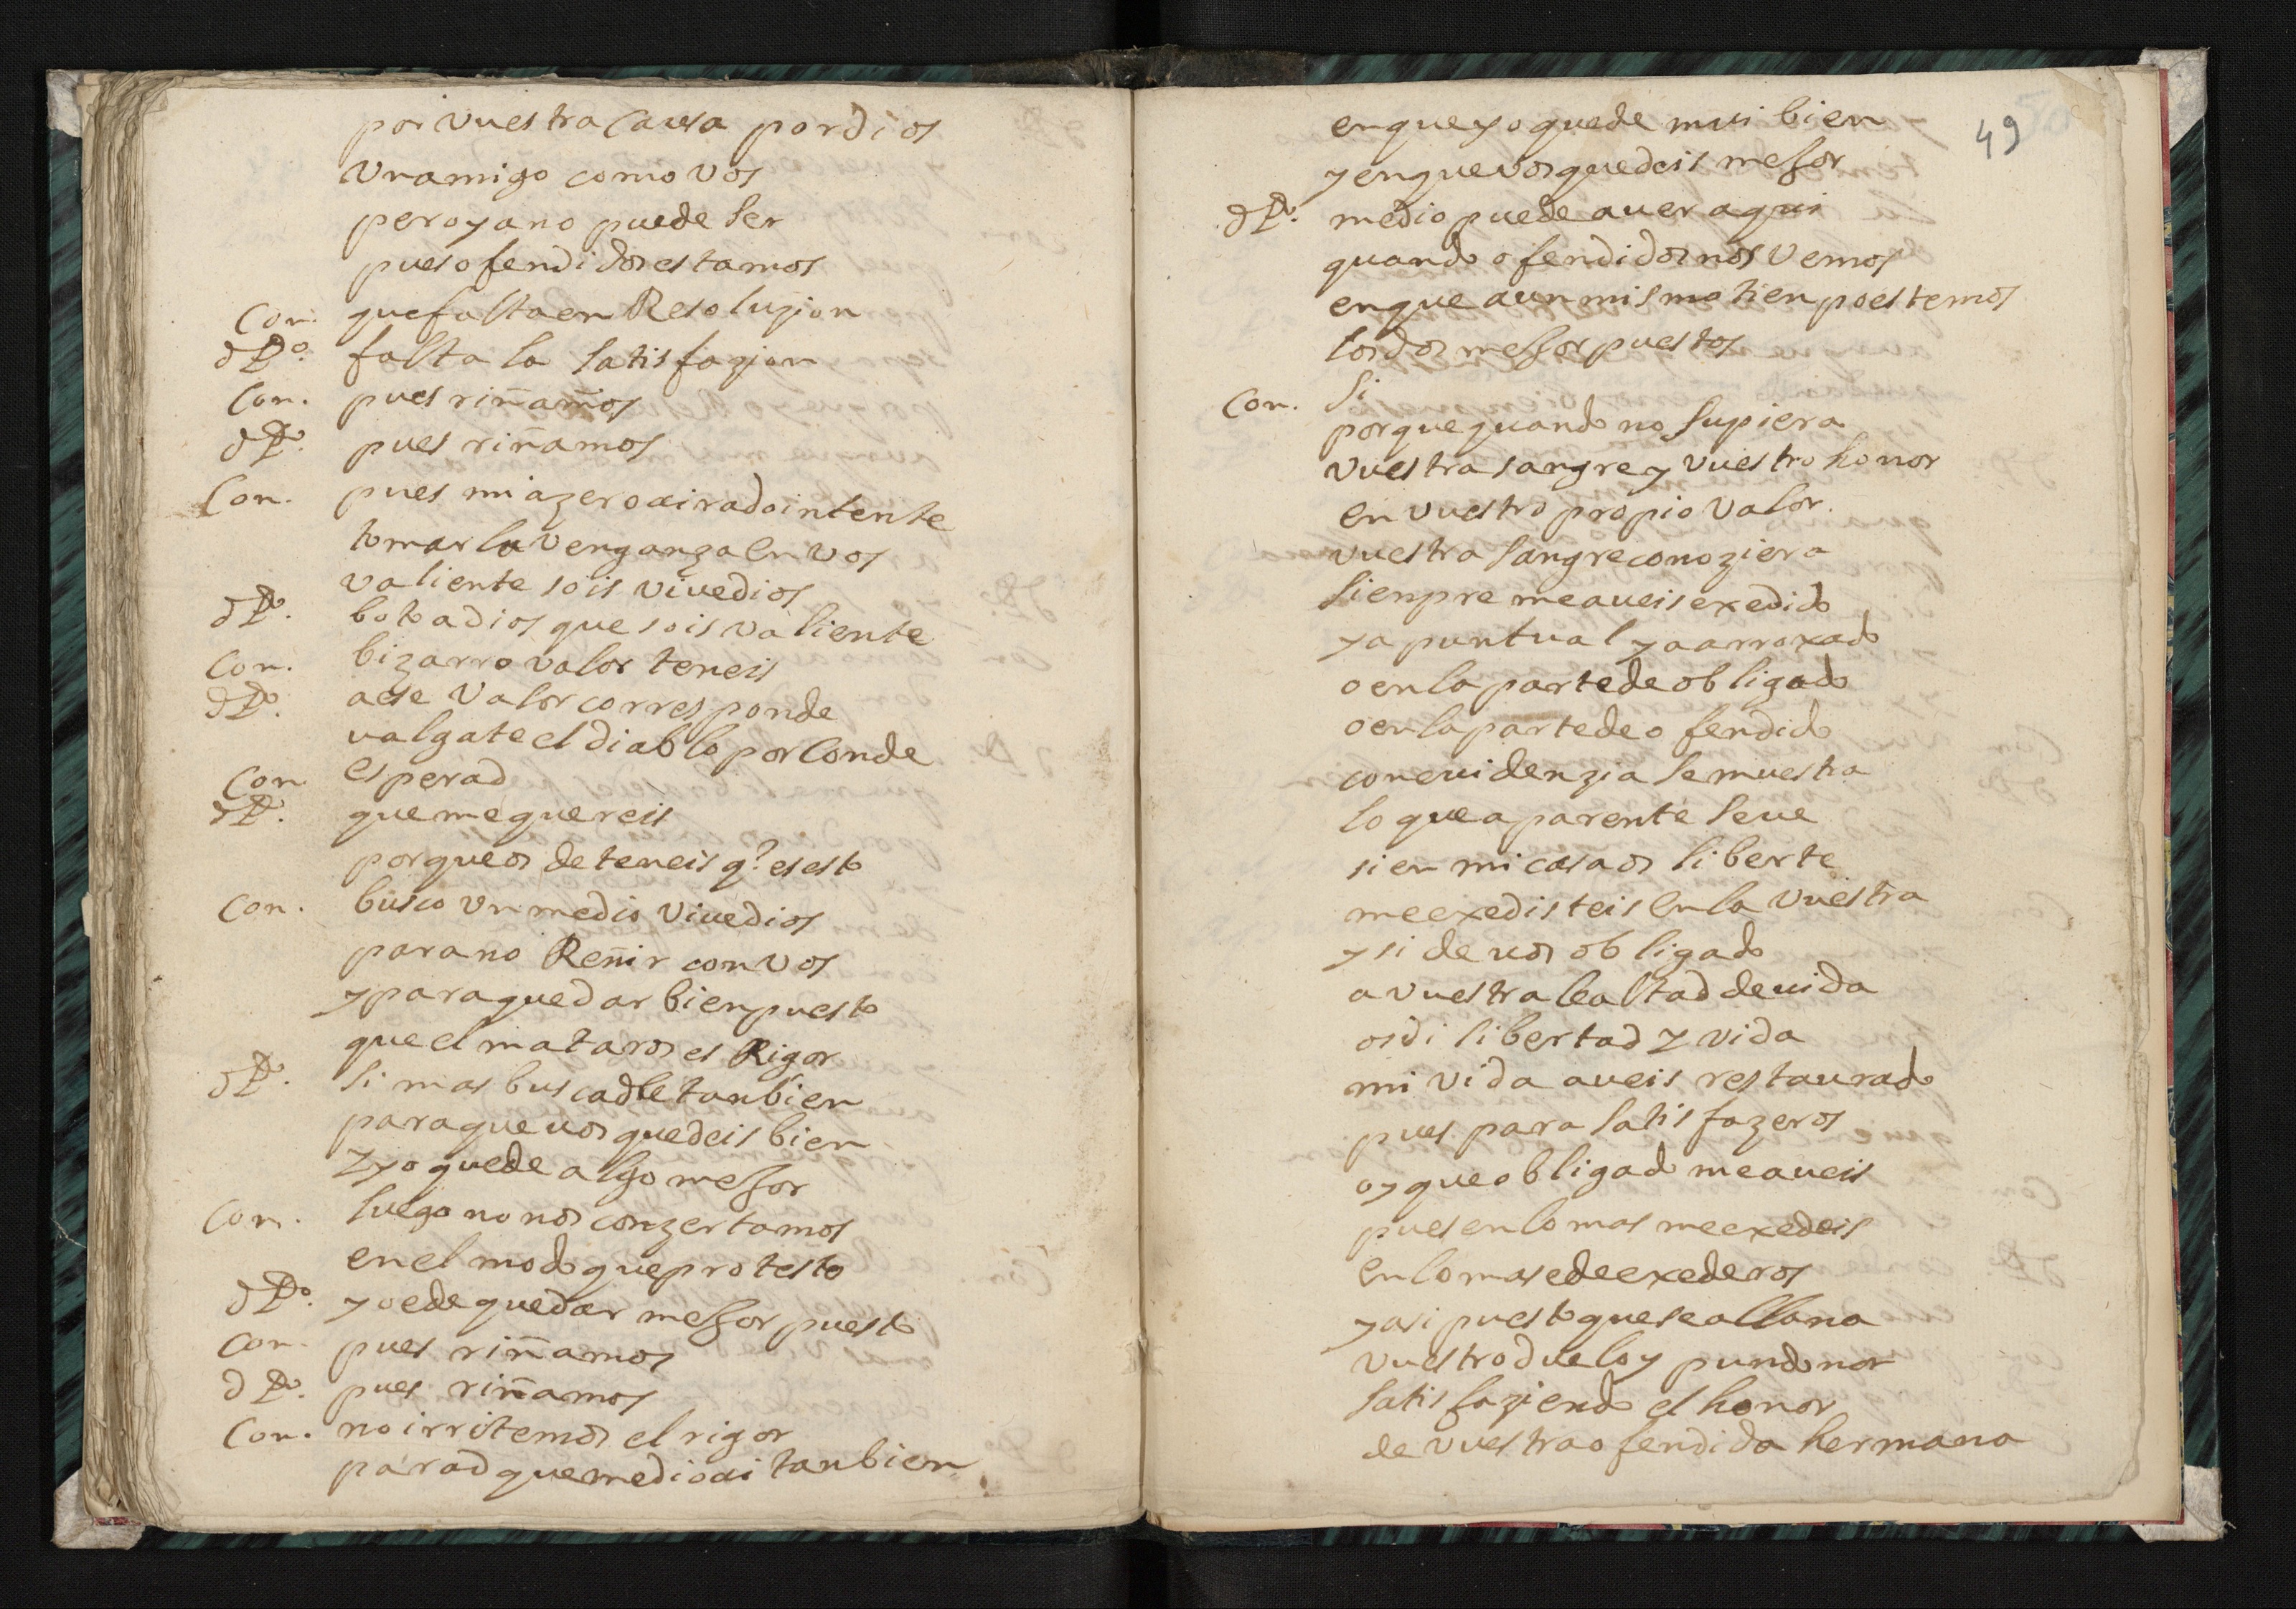 por vuestra causa por dios
un amigo como vos
pero ya no puede ser
pues ofendidos estamos
Con. que falta en Resoluzion
dPº. falta la satisfazion
Con. pues riñamos
dPº. pues riñamos
Con. pues mi azero airado intente
tomar la venganza en vos
valiente sois viuedios
dPº. boto a dios que sois valiente
Con. bizarro valor teneis
dPº. a ese valor corresponde
valgate el diablo por Conde
Con esperad
dPº. que me quereis
porque os deteneis q? es esto
Con. busco un medio viuedios
para no Reñir con vos
y para quedar bien puesto
que el mataros es Rigor
dPº. si mas buscadle tanbien
para que vos quedeis bien
y yo quede algo mejor
Con. luego no nos conzertamos
en el modo que protesto
dPº. yo e de quedar mejor puesto
Con. pues riñamos
dPº. pues riñamos
Con. no irritemos el rigor
parad que medio ai tanbien
49
en que yo quede mui bien
y en que vos quedeis mejor
dPº. medio puede auer aqui
quando ofendidos nos vemos
en que a un mismo tienpo estemos
los dos mejor puestos
Con. si
porque quando no supiera
vuestra sangre y vuestro honor
en vuestro propio valor.
vuestra sangre conoziera
sienpre me aueis exedido
ya puntual ya arroxado
o en la parte de obligado
o en la parte de ofendido
con euidenzia se muestra
lo que aparente se ue
si en mi casa os liberte
me exedisteis en la vuestra
y si de uos obligado
a vuestra lealtad deuida
os di libertad y vida
mi vida aueis restaurado
pues para satisfazeros
oy que obligado me aueis
pues en lo mas me exedeis
en lo mas e de exederos
y asi puesto que se allana
vuestro duelo y pundonor
satisfaziendo el honor
de vuestra ofendida hermana